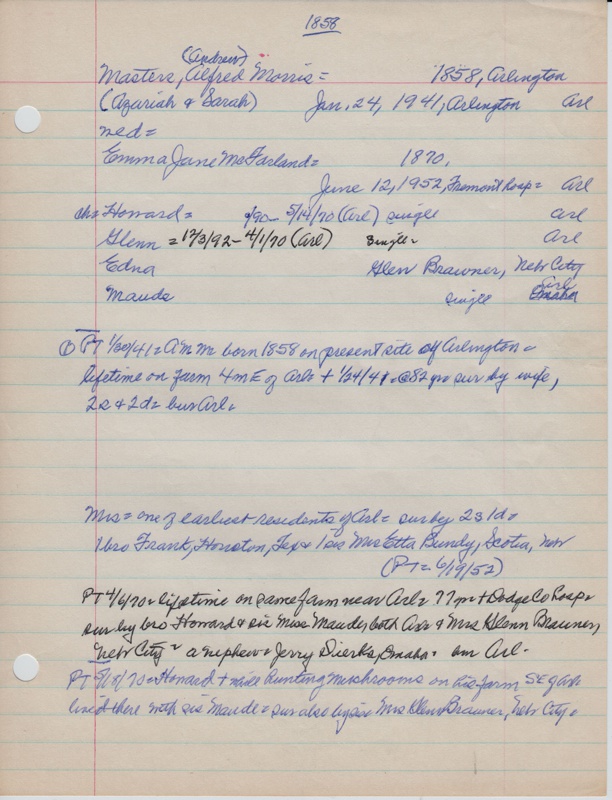 1858
(Andrew)
Masters, Alfred Morris = 1858, Arlington
(Azariah & Sarah) Jan. 24, 1941, Arlington Arl
med =
Emma Jane McFarland = 1870,
June 12, 1952, Fremont Hosp = Arl
ch = Howard = 9/90 - 5/14/70 (Arl) single Arl
Glenn = 12/3/92 - 4/1/70 (Arl) single = Arl
Edna Glen Brawner, Nebr City
Maude single Omaha Arl
PT 1/30/41 = A M M born 1858 on present site of Arlington =
lifetime on farm 4 m E of Arl = + 1/24/41 = @ 82 yr = sur by wife,
2 s & 2 d = bur Arl =
Mrs = one of earliest residents of Arl = sur by 2 s 1 d =
1 bro Frank, Houston, Tex & 1 sis Mrs Etta Bundy, Scotia, Nebr
(PT = 6/19/52)
PT 4/6/70 = lifetime on same farm near Arl = 77 yr = + Dodge Co Hosp =
sur by bro Howard & sis Miss Maude, both & Mrs Glenn Brawner,
Nebr City = a nephew = Jerry Dierks, Omaha = bur Arl =
PT = Howard + while hunting mushrooms on his farm SE of Arl
lived there with sis Maude = sur also by sis Mrs Glenn Brawner, Nebr City =